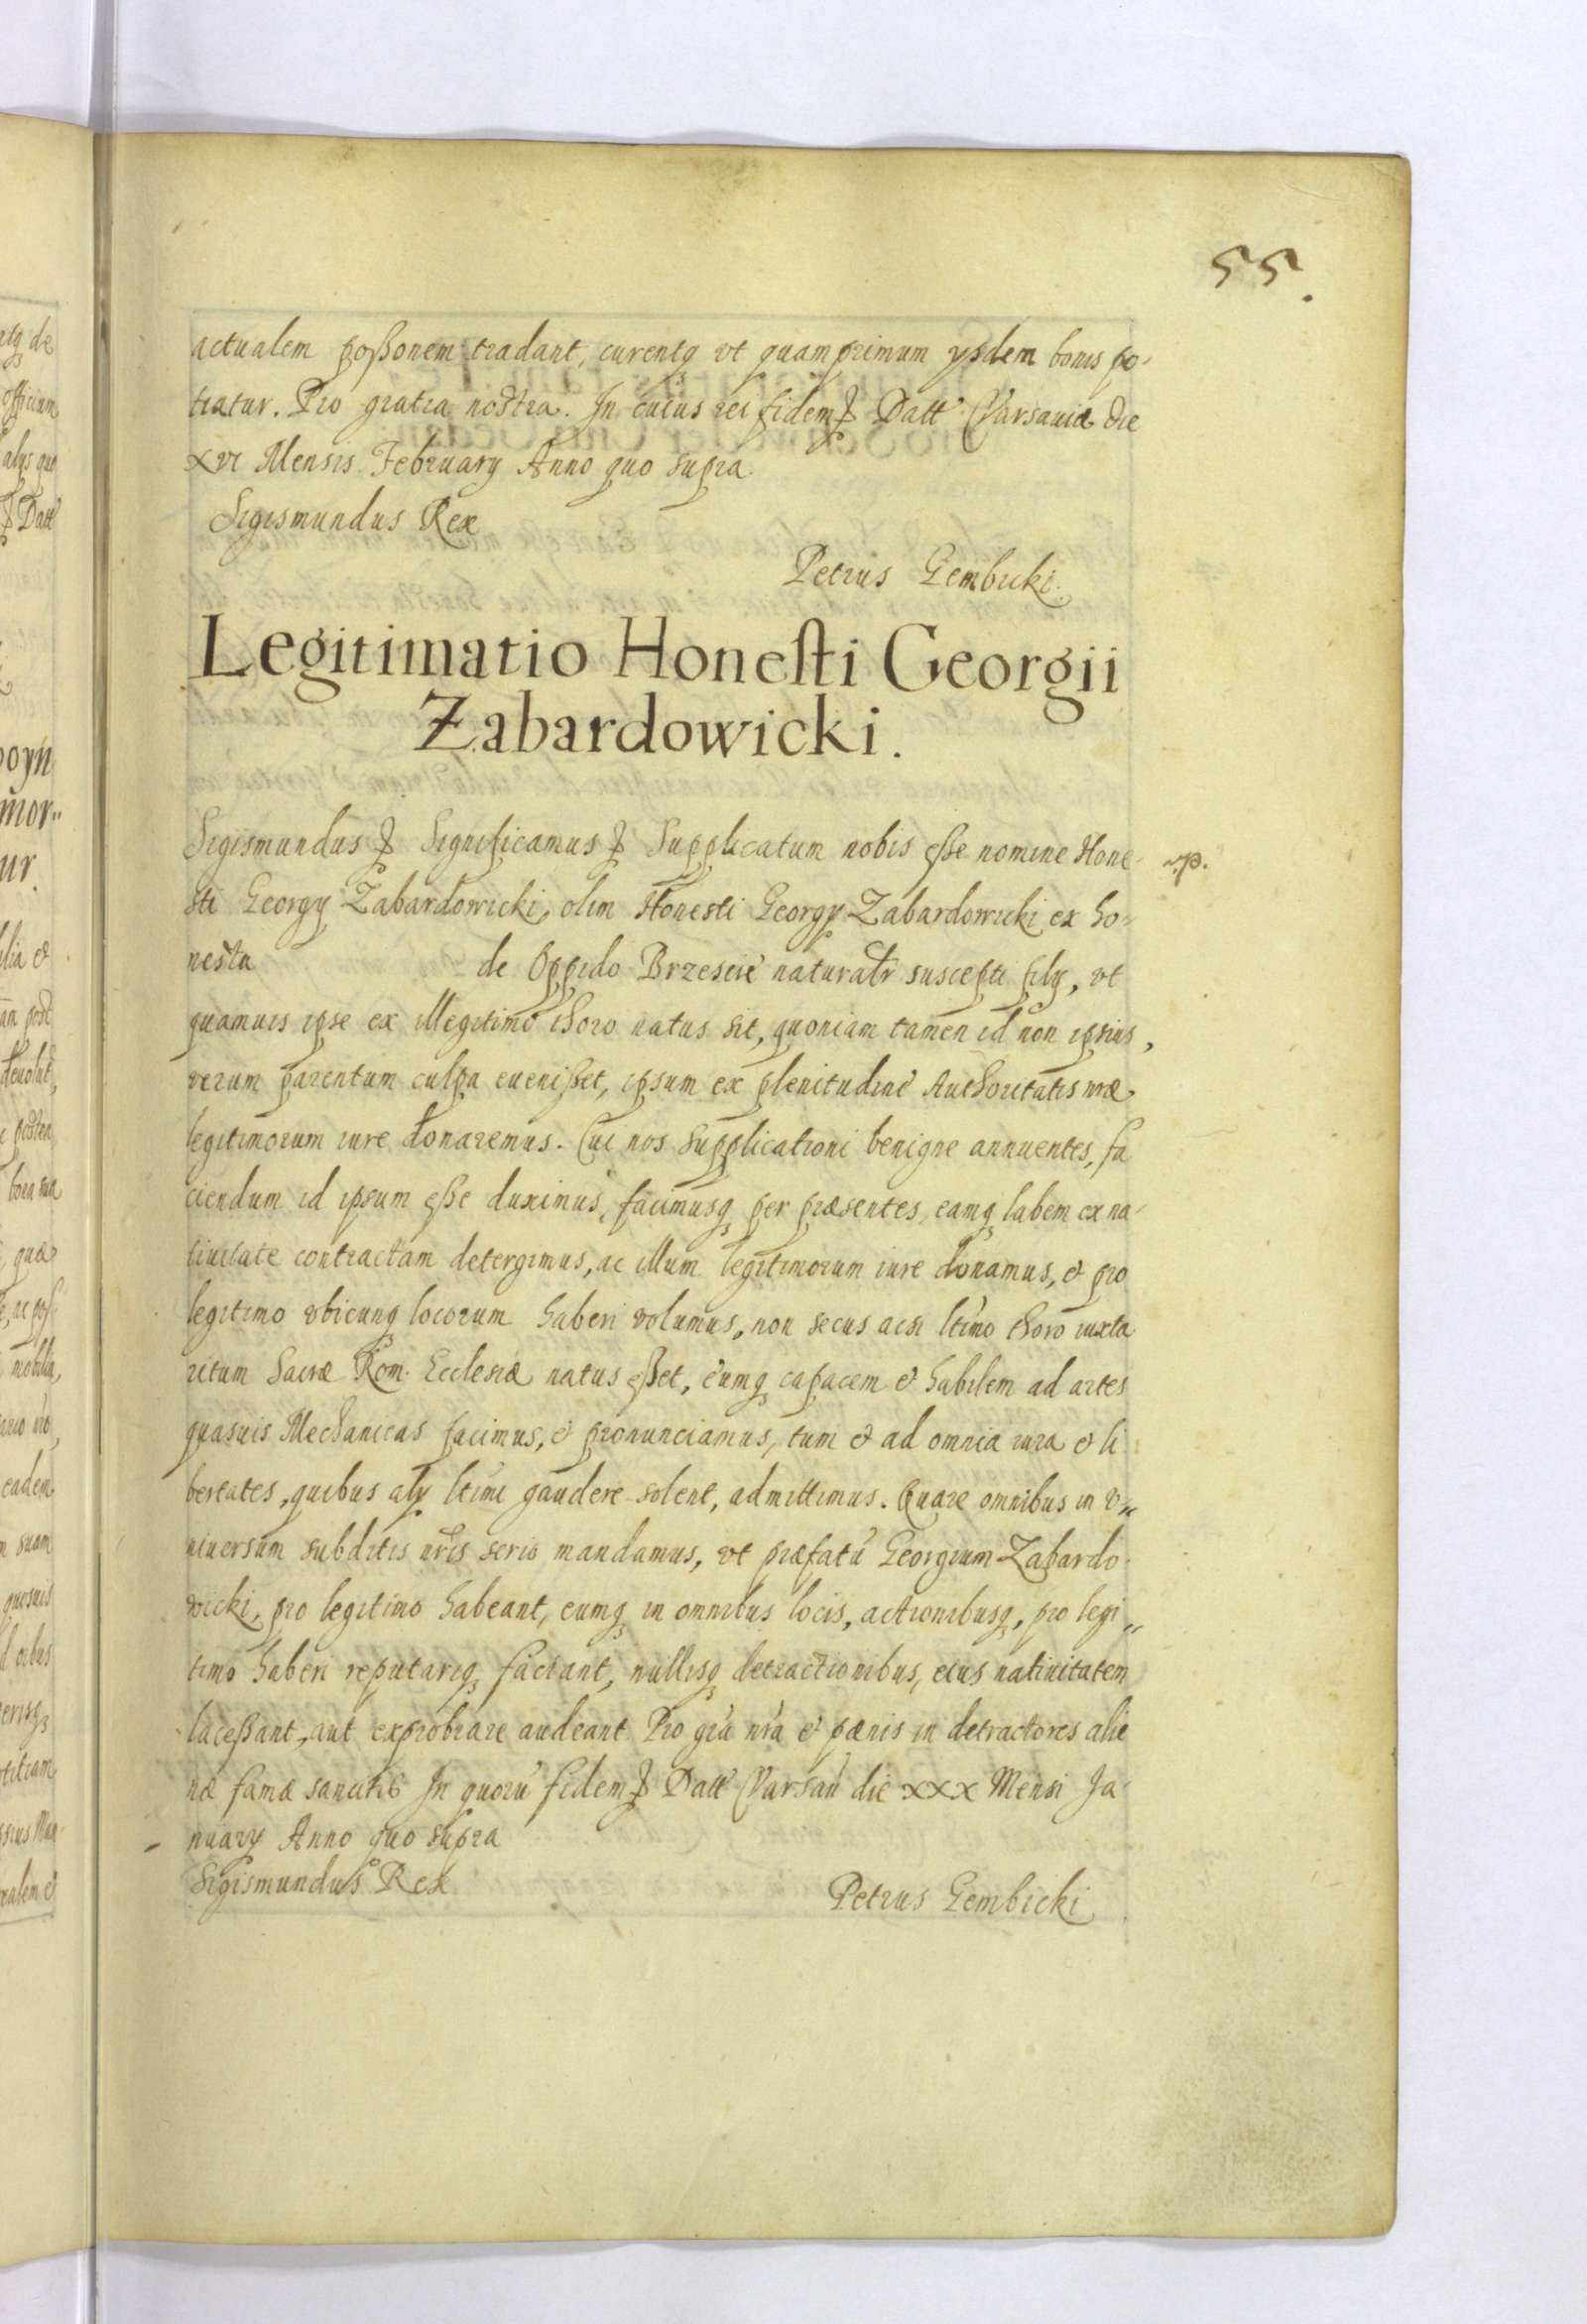 55.
actualem poßonem tradant, curentq ut quamprimum ysdem bonis po-
tiatur. Pro gratia nostra. In cuius rei fidem ꝑ Datt Varsaviæ die
XVI Mensis February Anno quo supra.
Sigismundus Rex
Petrus Gembicki.
Legitimatio Honesti Georgii
Zabardowicki.
Sigismundus ꝑ Significamus ꝑ Supplicatum nobis eße nomine Hone-
sti Georgy Zabardowicki, olim Honesti Georgy Zabardowicki ex ho-
nesta de Oppido Brzescie naturalr suscepti fily, vt
quamuis ipse ex illegitimo thoro natus sit, quoniam tamen id non ipsius,
verum parentum culpa euenißet, ipsum ex plenitudine Authoritatis nræ
legitimorum iure donaremus. Cui nos supplicationi benigne annuentes, fa
ciendum id ipsum eße duximus, facimusq per præsentes, eamq labem ex na-
tiuitate contractam detergimus, ac illum legitimorum iure donamus, & pro
legitimo vbicunq locorum haberi volumus, non secus acsi ltimo thoro iuxta
ritum Sacræ Rom. Ecclesiæ natus eßet, eumq capacem & habilem ad artes
quasuis Mechanicas facimus, & pronunciamus, tum & ad omnia iura & li
bertates, quibus aly ltimi gaudere solent, admittimus. Quare omnibus in v„
niuersum subditis nris serio mandamus, vt præfatu Georgium Zabardo-
wicki, pro legitimo habeant, eumq in omnibus locis, actionibusq, pro legi„
timo haberi reputariq faciant, nullisq detractionibus, eius natiuitatem
laceßant, aut exprobrare audeant Pro gra nra & pænis in detractores alie
næ famæ sancitis In quoru fidem ꝑ Datt Varsau die XXX Mensi Ja-
nuary Anno quo supra
Sigismundus Rex
Petrus Gembicki